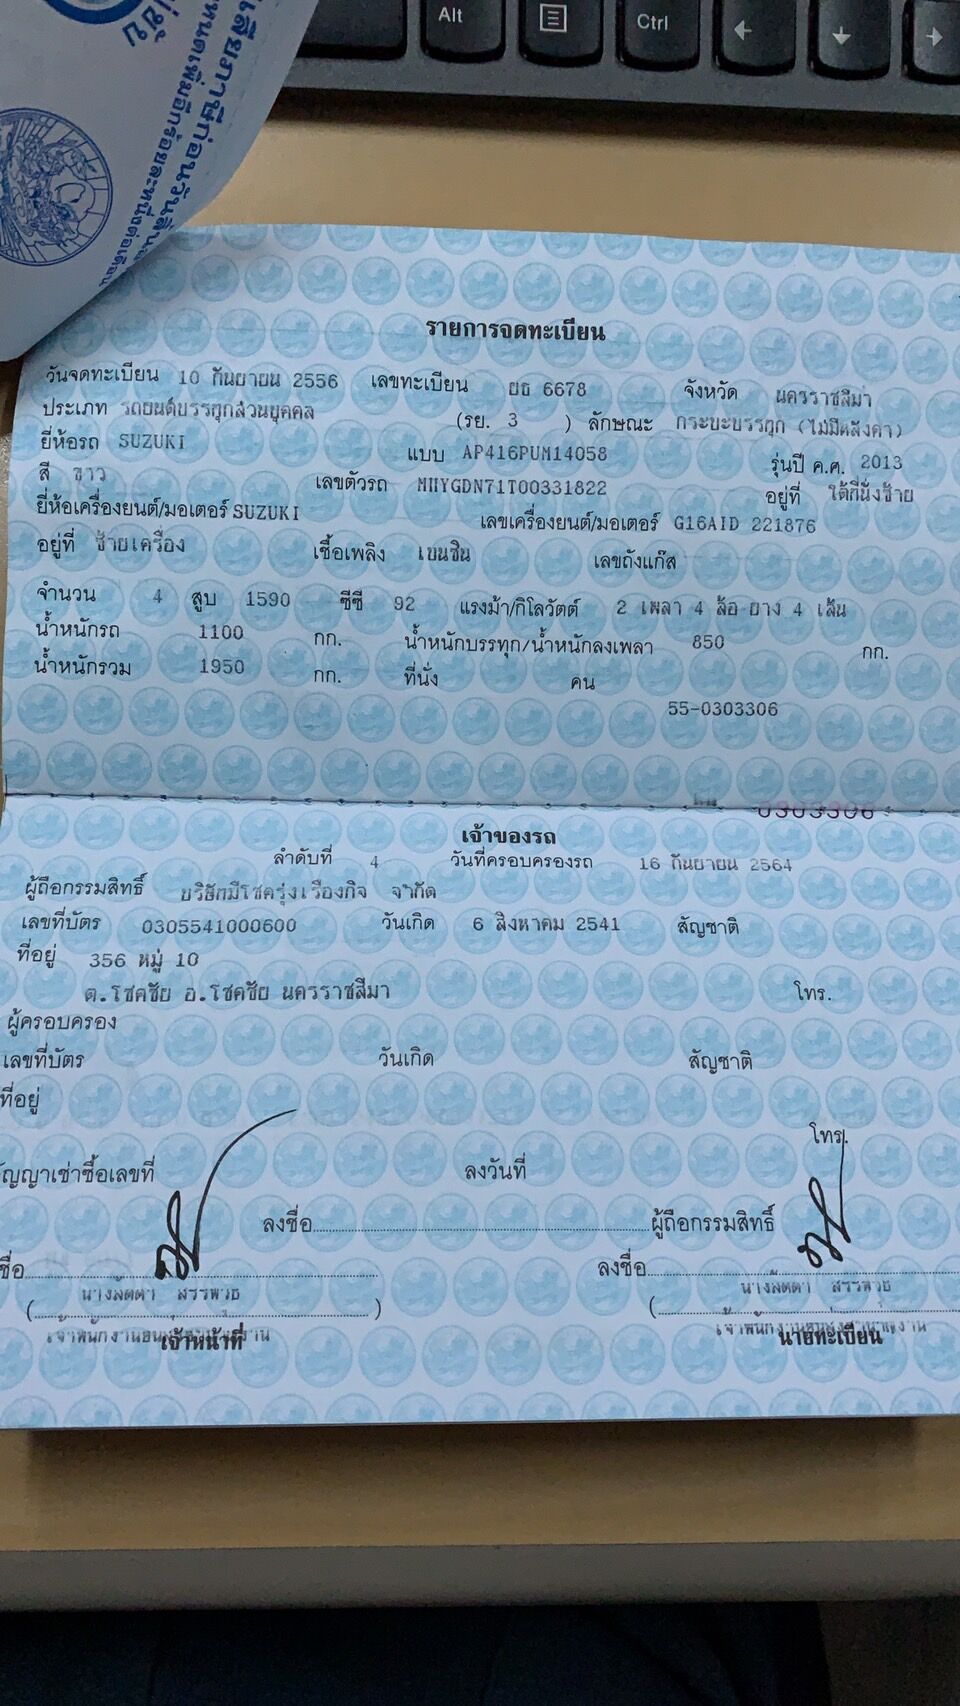 Alt
Ctrl
รายการจดทะเบียน
วันจดทะเบียน 10 กันยายน 2556 เลขทะเบียน ยธ 6678 จังหวัด นครราชสีมา
ประเภท รถยนต์บรรทุกส่วนบุคคล (รย. 3 ) ลักษณะ กระบะบรรทุก (ไม่มีหลังคา)
ยี่ห้อรถ SUZUKI แบบ AP416PUM14058 รุ่นปี ค.ศ. 2013
สี ขาว เลขตัวรถ MHYGDN71T00331822 อยู่ที่ ใต้ที่นั่งซ้าย
ยี่ห้อเครื่องยนต์/มอเตอร์ SUZUKI เลขเครื่องยนต์/มอเตอร์ G16AID 221876
อยู่ที่ ซ้ายเครื่อง เชื้อเพลิง เบนซิน เลขถังแก๊ส
จำนวน 4 สูบ 1590 ซีซี 92 แรงม้า/กิโลวัตต์ 2 เพลา 4 ล้อ ยาง 4 เส้น
น้ำหนักรถ 1100 กก. น้ำหนักบรรทุก/น้ำหนักลงเพลา 850 กก.
น้ำหนักรวม 1950 กก. ที่นั่ง คน
55-0303306
0303306
เจ้าของรถ
ลำดับที่ 4 วันที่ครอบครองรถ 16 กันยายน 2564
ผู้ถือกรรมสิทธิ์ บริษัทมีโชครุ่งเรืองกิจ จำกัด
เลขที่บัตร 0305541000600 วันเกิด 6 สิงหาคม 2541 สัญชาติ
ที่อยู่ 356 หมู่ 10
ต.โชคชัย อ.โชคชัย นครราชสีมา โทร.
ผู้ครอบครอง
เลขที่บัตร วันเกิด สัญชาติ
ที่อยู่
โทร.
ัญญาเช่าซื้อเลขที่ ลงวันที่
ลงชื่อ ผู้ถือกรรมสิทธิ์
ชื่อ ลงชื่อ
( นางลัดดา ) ( นางลัดดา
เจ้าหน้าที่ นายทะเบียน